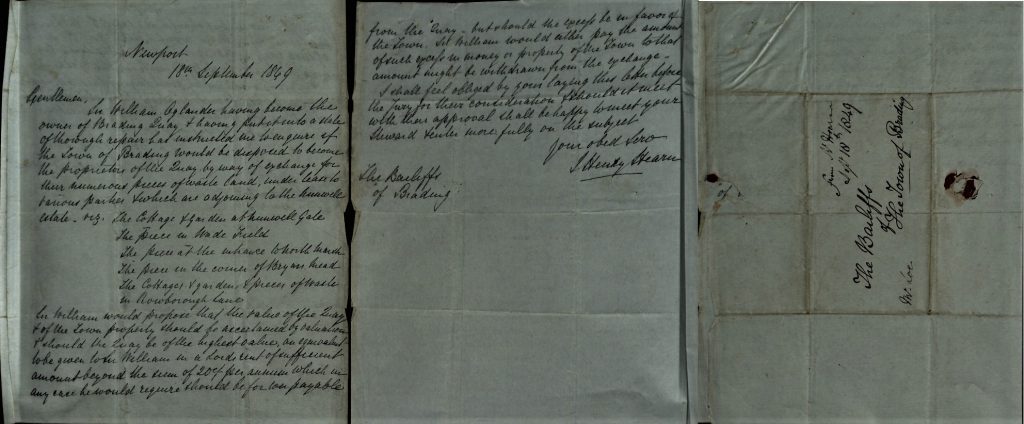 Newport
18th September 1849
Gentlemen,
Sir William Oglander having become the
owner of Brading Quay & having put it into a state
of thorough repair has instructed me to enquire if
the Town of Brading would be disposed to become
the proprietors of the Quay by way of exchange for
their numerous pieces of waste land, under lease to
various parties & which are adjoining to the Nunwell
estate - viz. The Cottage & garden at Nunwell Gate
The piece in Wade Field
The piece at the entrance to North Marsh
The piece in the corner of Mead
The Cottages & gardens & pieces of Waste
in Rowborough Lane
Sir William would propose that the value of the Quay
& of the Town property should be ascertained by valuation
& should the Quay be of the highest value, an equivalent
to be given to Sir William in a Lords rent of sufficient
amount beyond the sum of per annum which in
any case he would require should be for ever payable
from the Quay - but should the excess be in favor of
the Town Sir William would either pay the amount
of such excess in money or property of the Town to that
amount might be withdrawn from the exchange -
I shall feel obliged by your laying this letter before
the Jury for their consideration & should it meet
with their approval shall be happy to meet your
Steward & enter more fully on the subject
Your obed Serv
J Henry Hearn
The Bailiffs
of Brading
of
From
Sept 18th 1849
The Bailiffs
of The Town of Brading